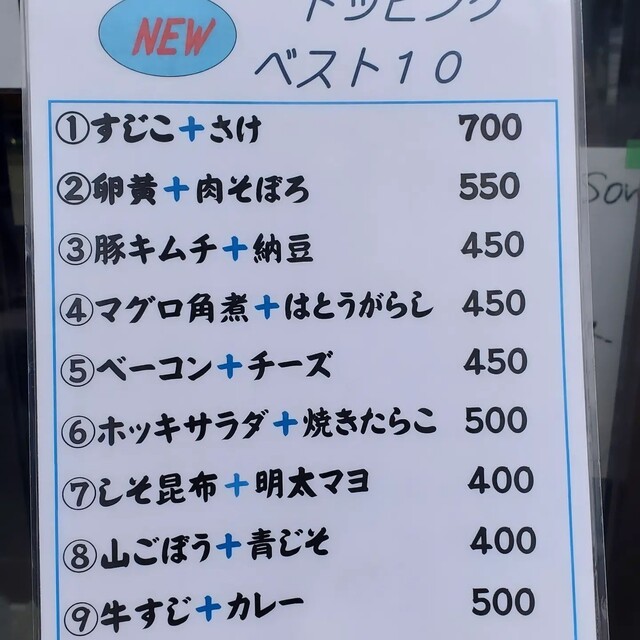 NEW
トッピング
ベスト10
①すじこ+さけ 700
②卵黄+肉そぼろ 550
③豚キムチ+納豆 450
④マグロ角煮+はとうがらし 450
⑤ベーコン+チーズ 450
⑥ホッキサラダ+焼きたらこ 500
⑦しそ昆布+明太マヨ 400
⑧山ごぼう+青じそ 400
⑨牛すじ+カレー 500